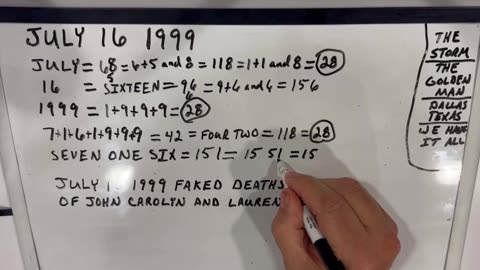 JULY 16 1999
JULY = 68 = 6+5 and 8 = 118 = 1+1 and 8 = 28
16 = SIXTEEN = 96 = 9+6 and 6 = 156
1999 = 1+9+9+9 = 28
7+1+6+1+9+9+9 = 42 = FOUR TWO = 118 = 28
SEVEN ONE SIX = 151 = 15 51 = 15
JULY 1 1999 FAKED DEATHS
OF JOHN CAROLYN AND LAUREN
THE
STORM
THE
GOLDEN
MAN
DALLAS
TEXAS
WE HAVE
IT ALL